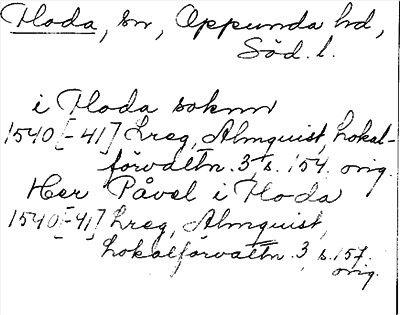 Floda, sn, Oppunda hd,
Söd. l.
i Floda sokn
1540[-41] Lreg, Almquist, Lokal-
förvaltn. 3, s. 154. orig.
Her Påvel i Floda
1540[-41] Lreg, Almquist,
Lokalförvaltn. 3, s. 157.
orig.